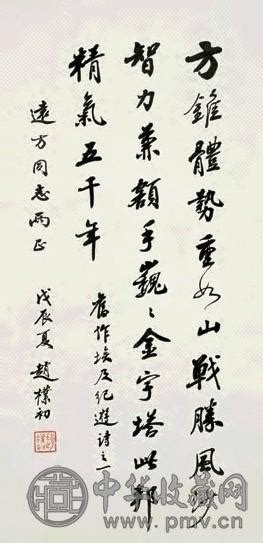 方錐體勢重如山戰勝風沙
智力兼額手巍々金字塔此邦
精氣五千年
舊作埃及紀遊詩之一
遠方同志兩正
戊辰夏趙樸初
中华收藏网
www.pmv.cn